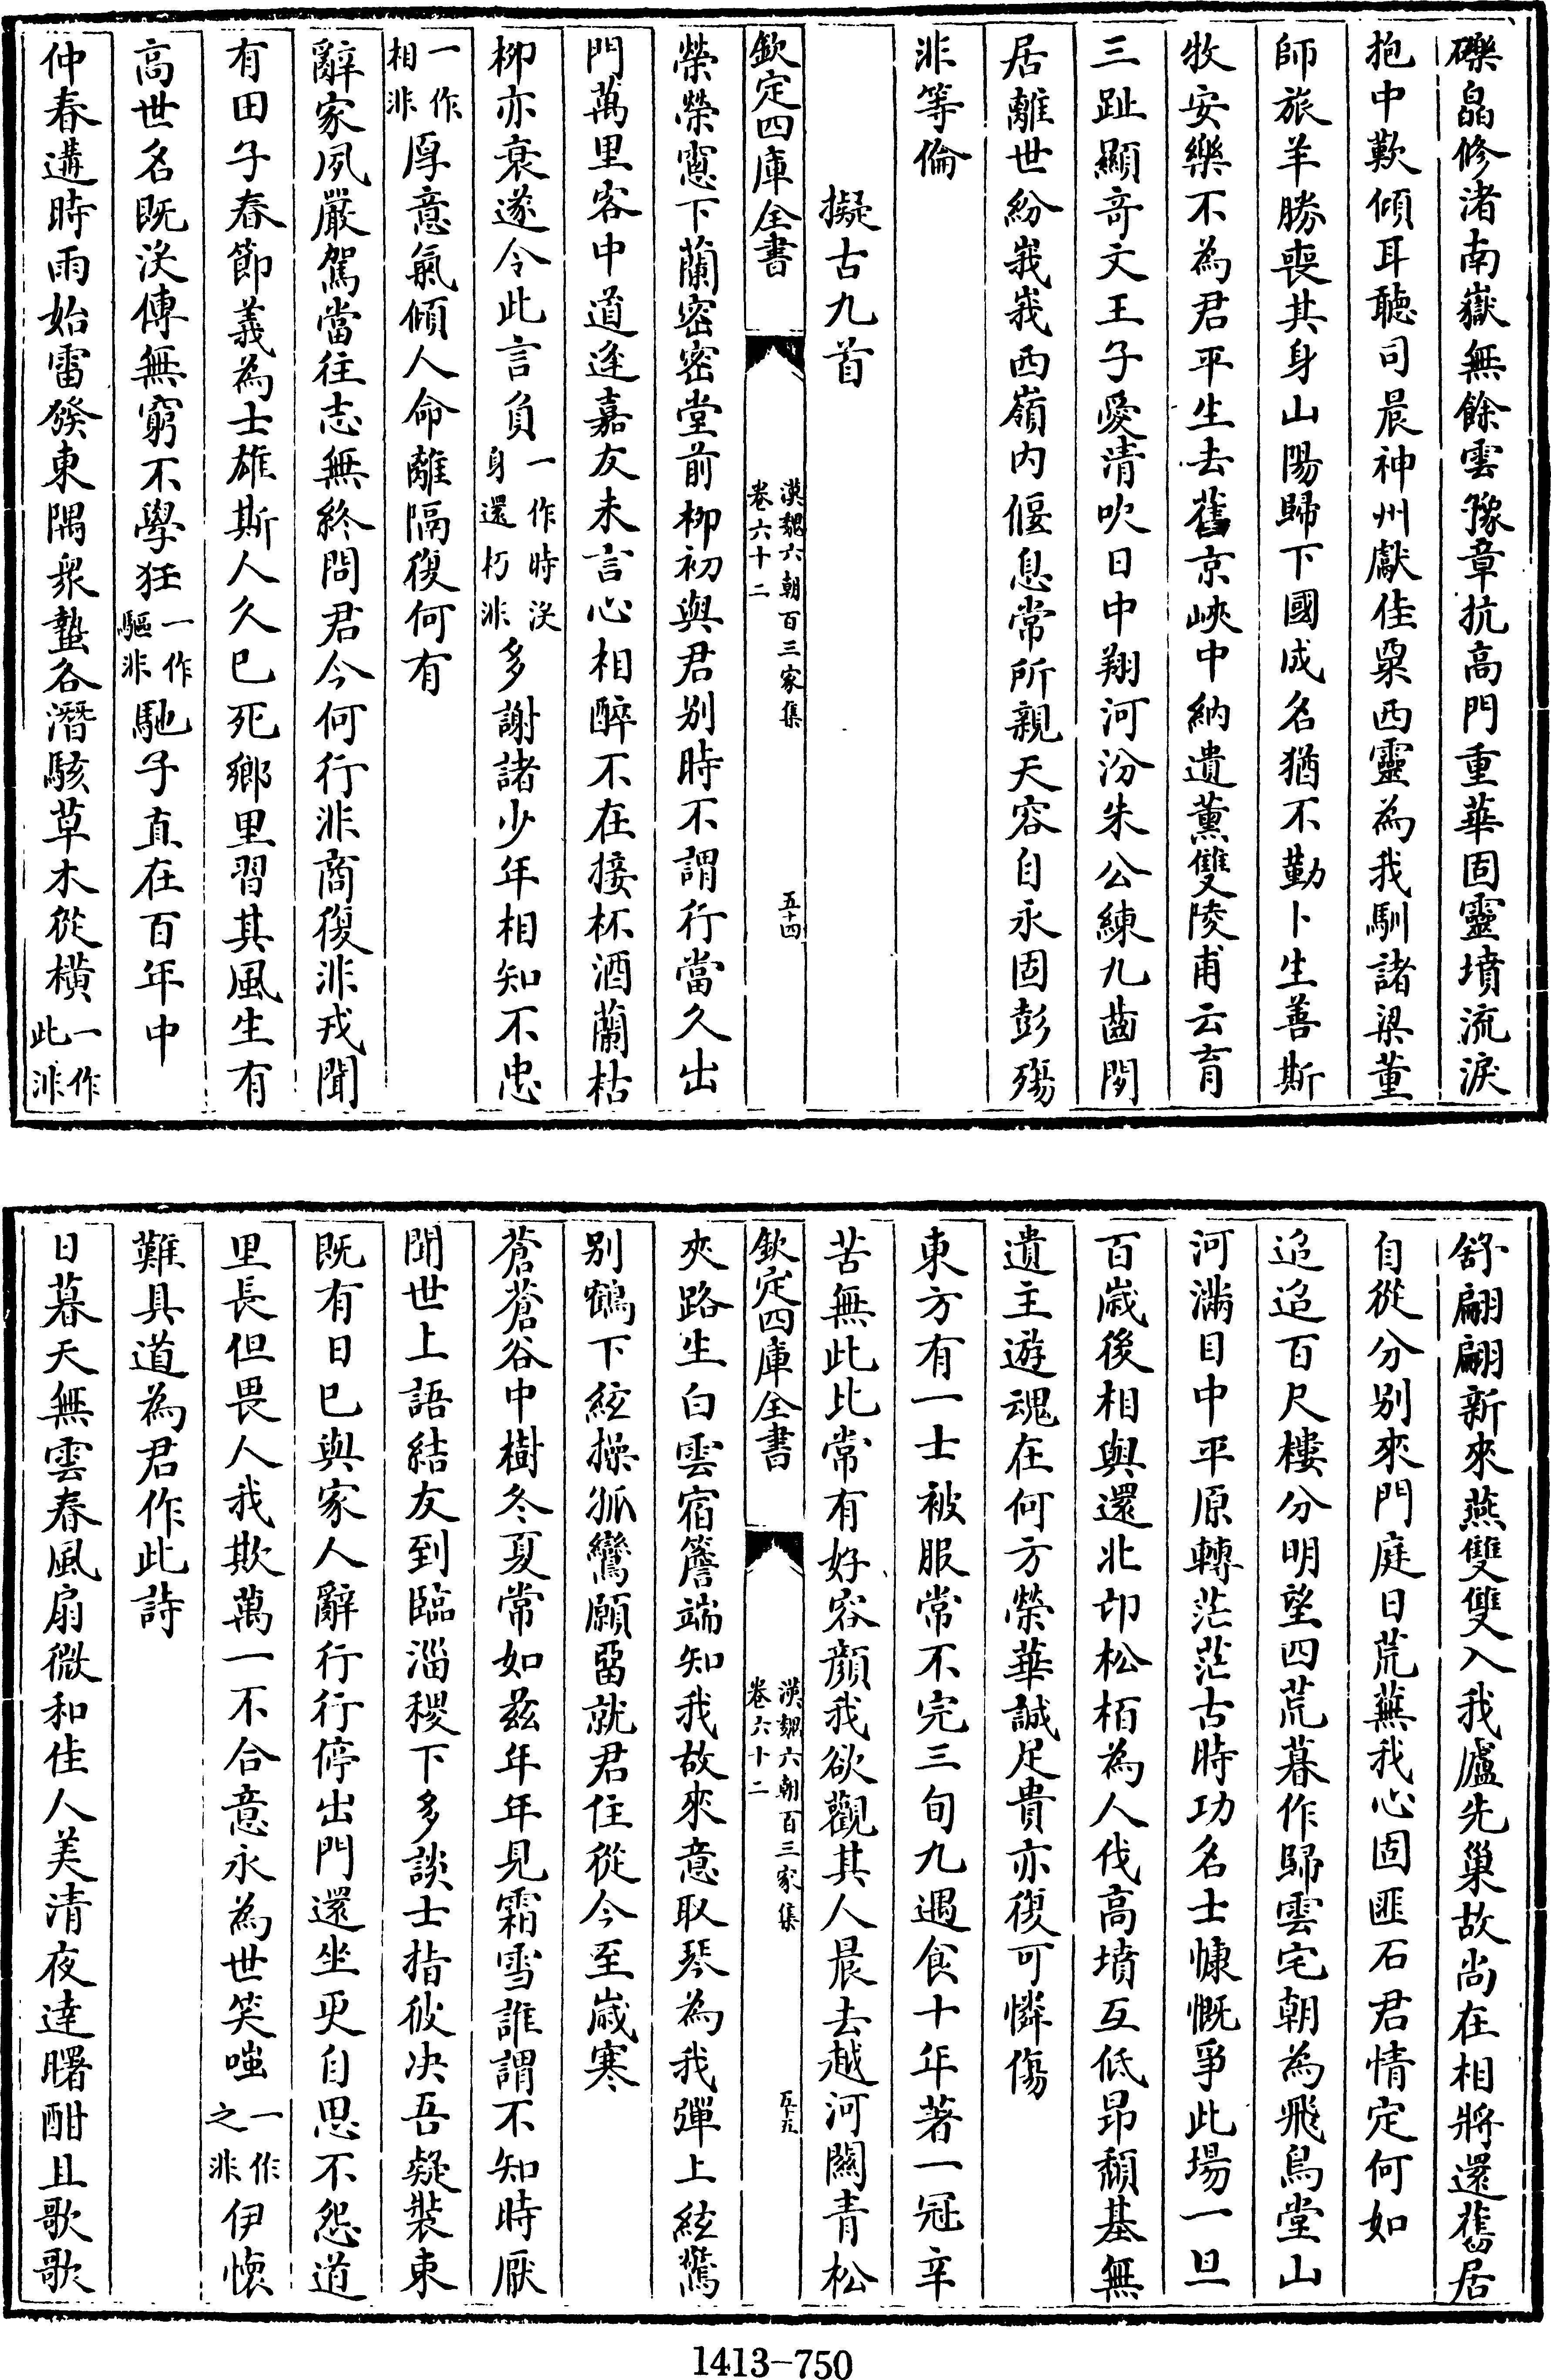 礫皛修渚南嶽無餘雲豫章抗高門重華固靈墳流淚
抱中歎傾耳聽司晨神州獻佳粟西靈為我馴諸梁董
師旅羊勝喪其身山陽歸下國成名猶不勤卜生善斯
牧安樂不為君平生去舊京峽中納遺薰雙陵甫云育
三趾顯竒文王子愛清吹日中翔河汾朱公練九齒閉
居離世紛峩峩西嶺内偃息常所親天容自永固彭殤
非等倫
擬古九首
欽定四庫全書
漢魏六朝百三家集
卷六十二
五十四
榮榮窻下蘭密密堂前柳初與君别時不謂行當久出
門萬里客中道逢嘉友未言心相醉不在接杯酒蘭枯
柳亦衰遂令此言負一作時没身還朽非多謝諸少年相知不忠
一作相非厚意氣傾人命離隔復何有
辭家夙嚴駕當往志無終問君今何行非商復非戎聞
有田子春節義為士雄斯人久已死鄉里習其風生有
高世名既没傳無窮不學狂一作驅非馳子直在百年中
仲春遘時雨始雷發東隅衆蟄各潛駭草木從橫一作此非
舒翩翩新來燕雙雙入我廬先巢故尚在相將還舊居
自從分别來門庭日荒蕪我心固匪石君情定何如
迢迢百尺樓分明望四荒暮作歸雲宅朝為飛鳥堂山
河滿目中平原轉茫茫古時功名士慷慨爭此場一旦
百歳後相與還北邙松栢為人伐高墳互低昂頹基無
遺主遊魂在何方榮華誠足貴亦復可憐傷
東方有一士被服常不完三旬九遇食十年著一冠辛
苦無此比常有好容顔我欲觀其人晨去越河關青松
欽定四庫全書
漢魏六朝百三家集
卷六十二
五十五
夾路生白雲宿簷端知我故來意取琴為我彈上絃驚
别鶴下絃操孤鸞願留就君住從今至歳寒
蒼蒼谷中樹冬夏常如茲年年見霜雪誰謂不知時厭
聞世上語結友到臨淄稷下多談士指彼决吾疑裝束
既有日已與家人辭行行停出門還坐更自思不怨道
里長但畏人我欺萬一不合意永為世笑嗤一作之非伊懷
難具道為君作此詩
日暮天無雲春風扇微和佳人美清夜達曙酣且歌歌
1413-750